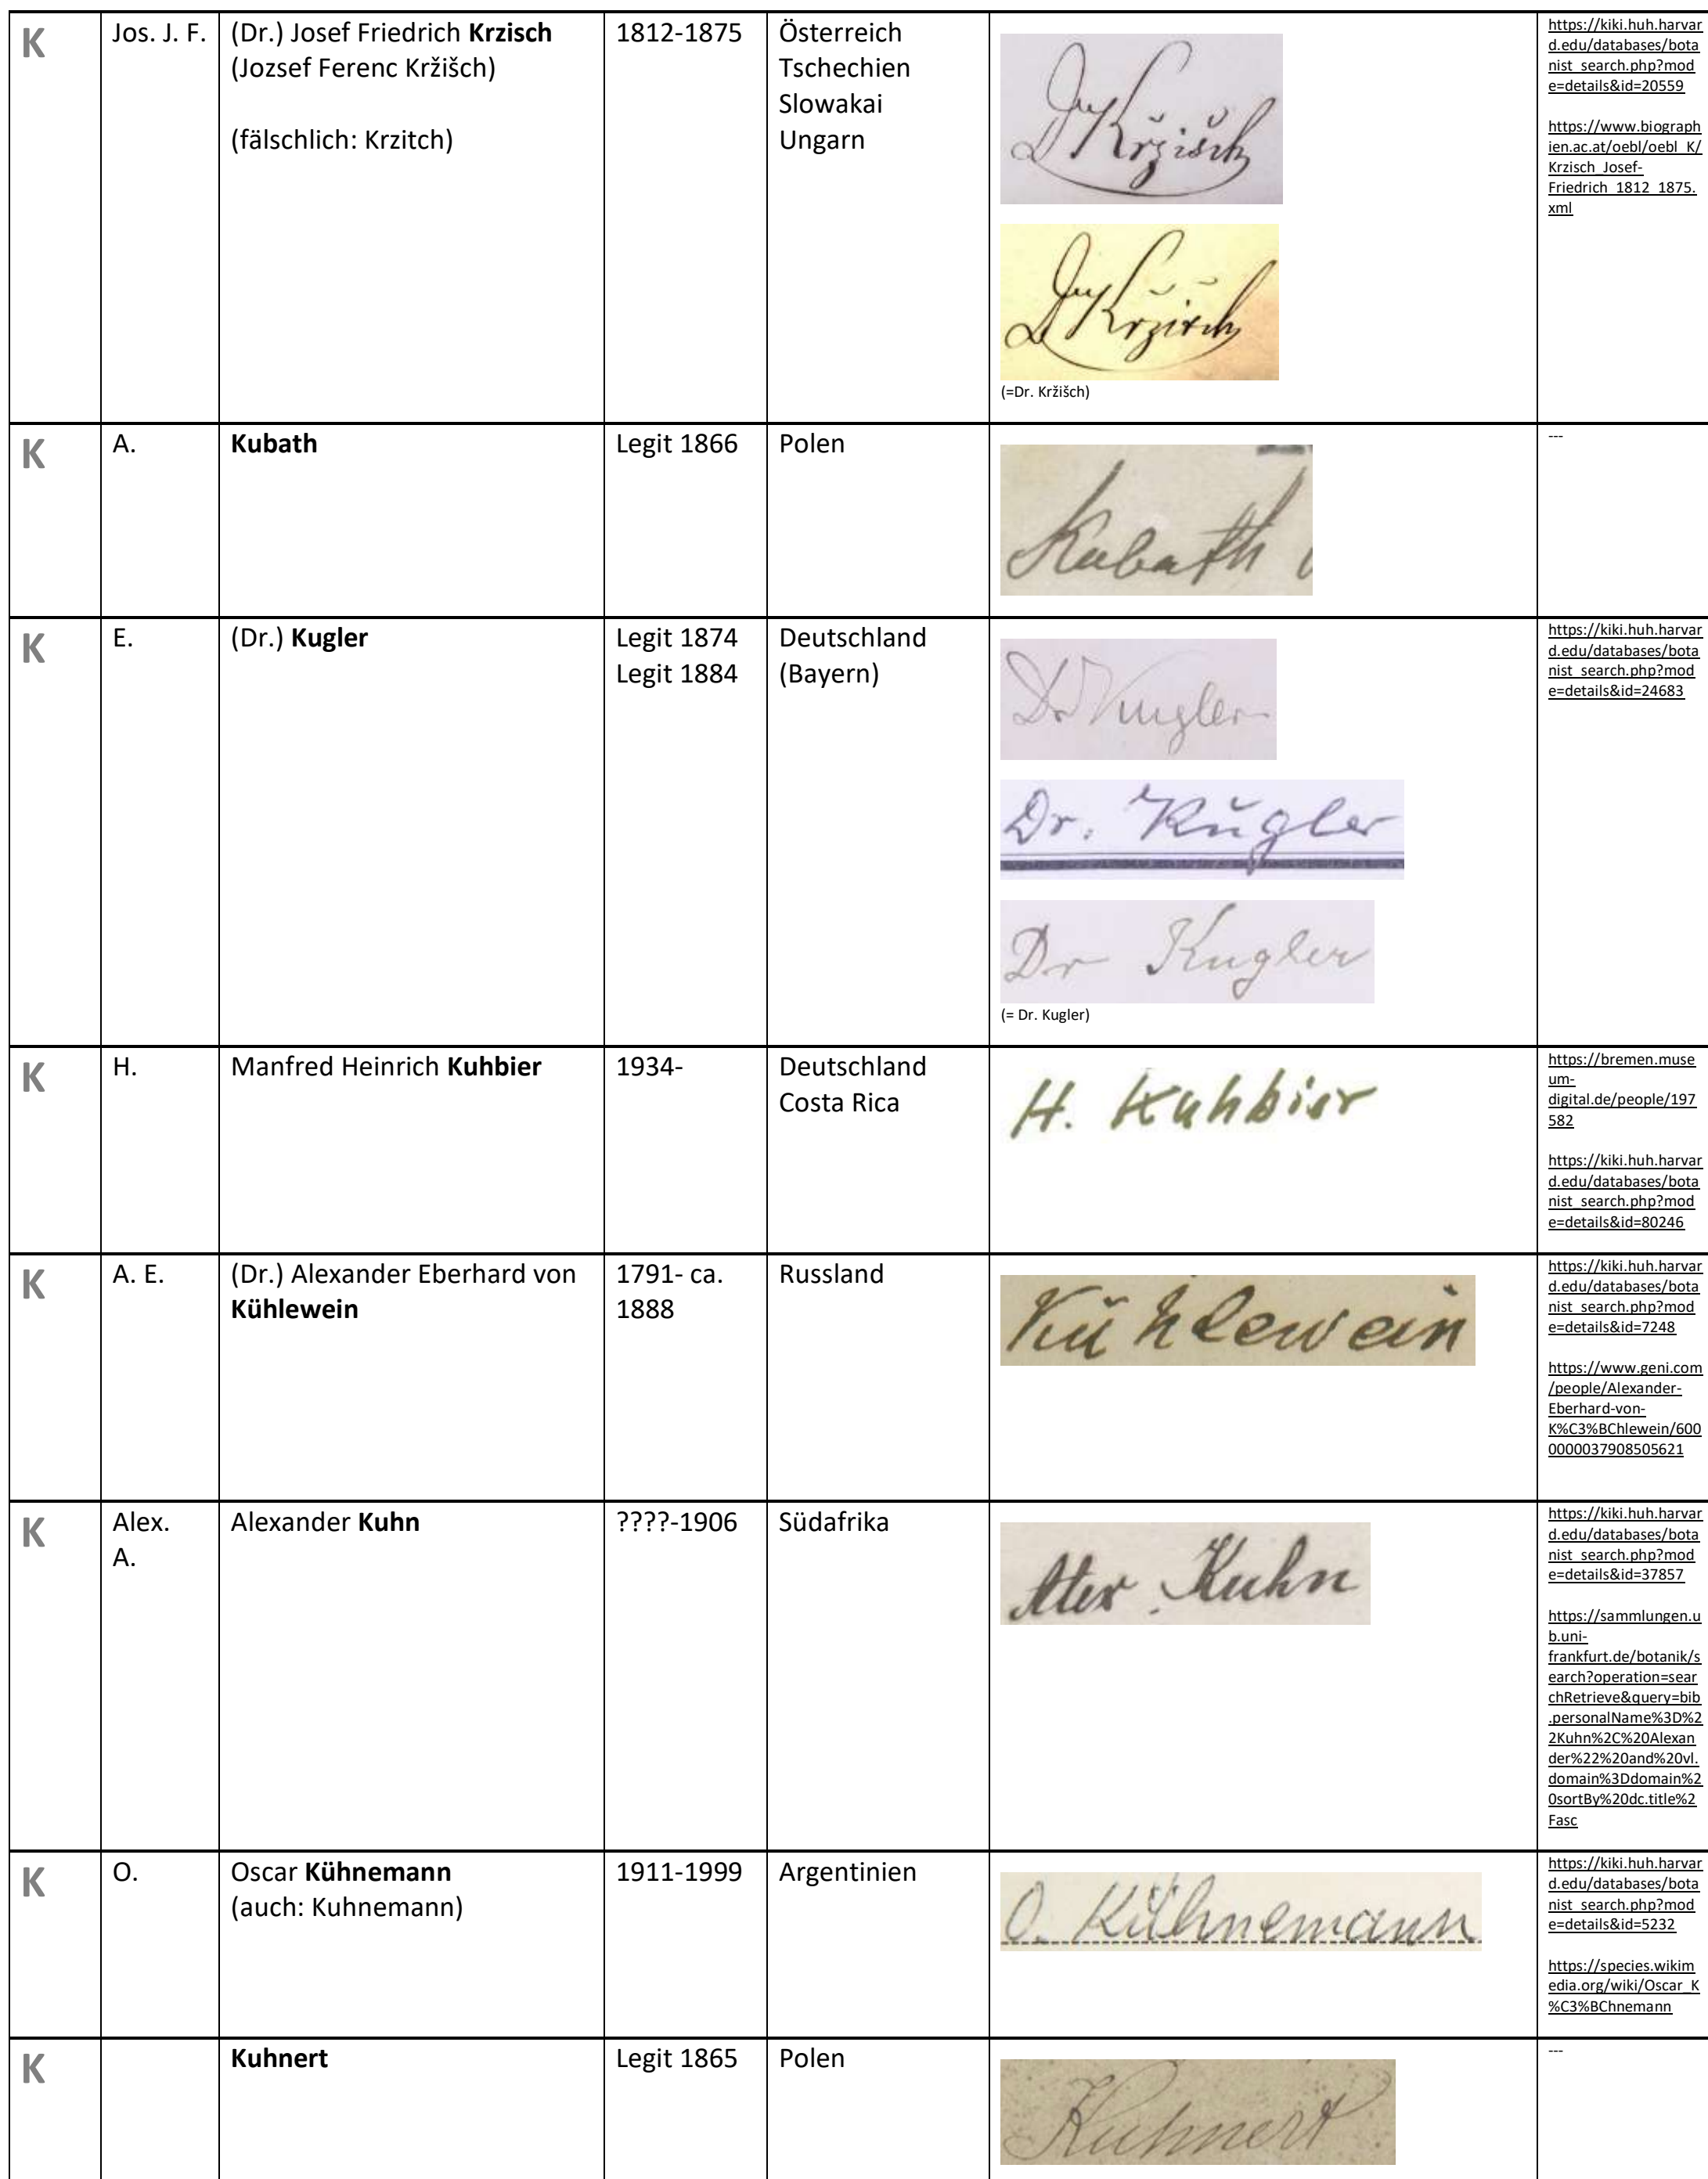 K
Jos. J. F.
(Dr.) Josef Friedrich Krzisch
(Jozsef Ferenc Kržišch)
(fälschlich: Krzitch)
1812-1875
Österreich
Tschechien
Slowakai
Ungarn
Dr Kržišch
Dr Kržišch
(=Dr. Kržišch)
https://kiki.huh.harvar
d.edu/databases/bota
nist_search.php?mod
e=details&id=20559
https://www.biograph
ien.ac.at/oebl/oebl_K/
Krzisch_Josef-
Friedrich_1812_1875.
xml
K
A.
Kubath
Legit 1866
Polen
Kubath
---
K
E.
(Dr.) Kugler
Legit 1874
Legit 1884
Deutschland
(Bayern)
Dr Kugler
Dr. Kŭgler
Dr Kugler
(= Dr. Kugler)
https://kiki.huh.harvar
d.edu/databases/bota
nist_search.php?mod
e=details&id=24683
K
H.
Manfred Heinrich Kuhbier
1934-
Deutschland
Costa Rica
H. Kuhbier
https://bremen.muse
um-
digital.de/people/197
582
https://kiki.huh.harvar
d.edu/databases/bota
nist_search.php?mod
e=details&id=80246
K
A. E.
(Dr.) Alexander Eberhard von
Kühlewein
1791- ca.
1888
Russland
Kühlewein
https://kiki.huh.harvar
d.edu/databases/bota
nist_search.php?mod
e=details&id=7248
https://www.geni.com
/people/Alexander-
Eberhard-von-
K%C3%BChlewein/600
0000037908505621
K
Alex.
A.
Alexander Kuhn
????-1906
Südafrika
Alex Kuhn
https://kiki.huh.harvar
d.edu/databases/bota
nist_search.php?mod
e=details&id=37857
https://sammlungen.u
b.uni-
frankfurt.de/botanik/s
earch?operation=sear
chRetrieve&query=bib
.personalName%3D%2
2Kuhn%2C%20Alexan
der%22%20and%20vl.
domain%3Ddomain%2
0sortBy%20dc.title%2
Fasc
K
O.
Oscar Kühnemann
(auch: Kuhnemann)
1911-1999
Argentinien
O. Kühnemann
https://kiki.huh.harvar
d.edu/databases/bota
nist_search.php?mod
e=details&id=5232
https://species.wikim
edia.org/wiki/Oscar_K
%C3%BChnemann
K
Kuhnert
Legit 1865
Polen
Kuhnert
---